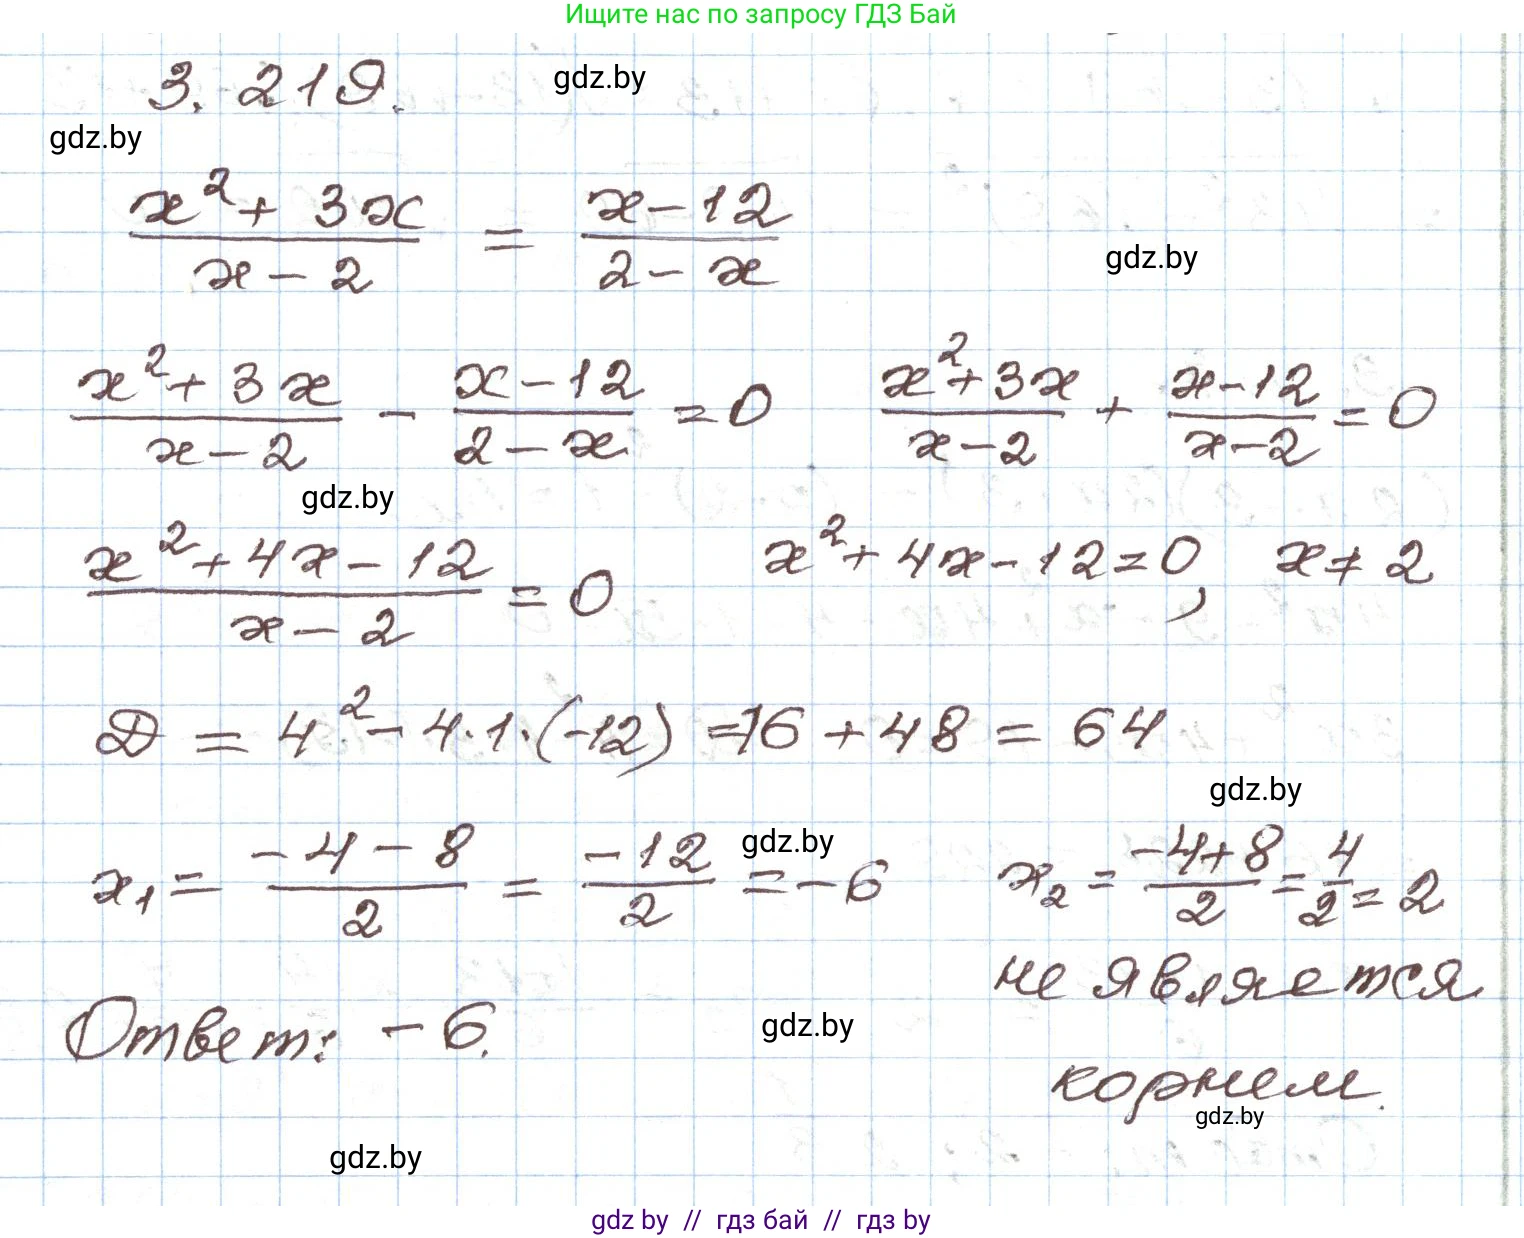 Ищите нас по запросу ГДЗ Бай
3.219.
gdz.by
gdz.by
(x²+3x)/(x-2) = (x-12)/(2-x)
gdz.by
(x²+3x)/(x-2) - (x-12)/(2-x) =0 (x²+3x)/(x-2) + (x-12)/(x-2) =0
gdz.by
(x²+4x-12)/(x-2) =0 x²+4x-12=0, x≠2
D = 4²-4·1·(-12) =16+48=64
gdz.by
gdz.by
x₁= (-4-8)/2 = (-12)/2 =-6 x₂= (-4+8)/2 = 4/2 =2
не является
Ответ: -6.
gdz.by
корнем.
gdz.by
gdz.by
gdz by // гдз бай // гдз by